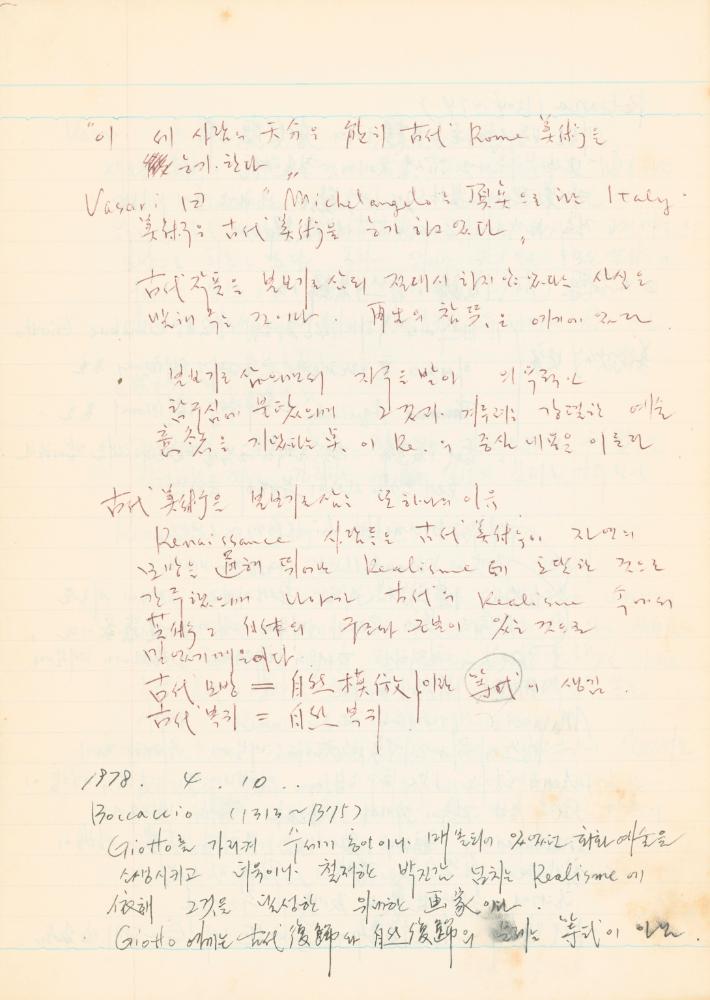 "이 세 사람의 天分은 능히 古代 Rome 美術을
능가 한다"
Vasari 曰 "Michelangelo를 頂点으로 하는 Italy
美術은 古代 美術을 능가 하고 있다"
古代작품은 본보기로 삼되 절대시 하지 않았다는 사실을
말해 주는 것이다. 再生의 참뜻은 여기에 있다
본보기로 삼으면서 자극을 받아 의욕적인
탐구심에 불탔으며 그것과 겨루려는 강렬한 예술
意欲을 지녔다는 뜻, 이 Re.의 중심 내용을 이룬다
古代 美術을 본보기로 삼는 또 하나의 이유
Renaissance 사람들은 古代 美術이 자연의
모방을 通해 뛰어난 Realisme에 도달한 것으로
간주했으며 나아가 古代의 Realisme 속에서
美術 의 구조와 근본이 있는 것으로
믿었기 때문이다
古代 모방 = 自然模倣 이란 等式이 생김.
古代 복귀 = 自然 복귀
1978. 4. 10..
Boccaccio (1313~1375)
Giotto를 가리켜 수세기 동안이나 매몰되어 있었던 회화 예술을
소생시키고 더욱이나 철저한 박진감 넘치는 Realisme에
依해 그것을 달성한 위대한 画家이다.
Giotto 에게는 古代復歸와 自然復歸의 等式이